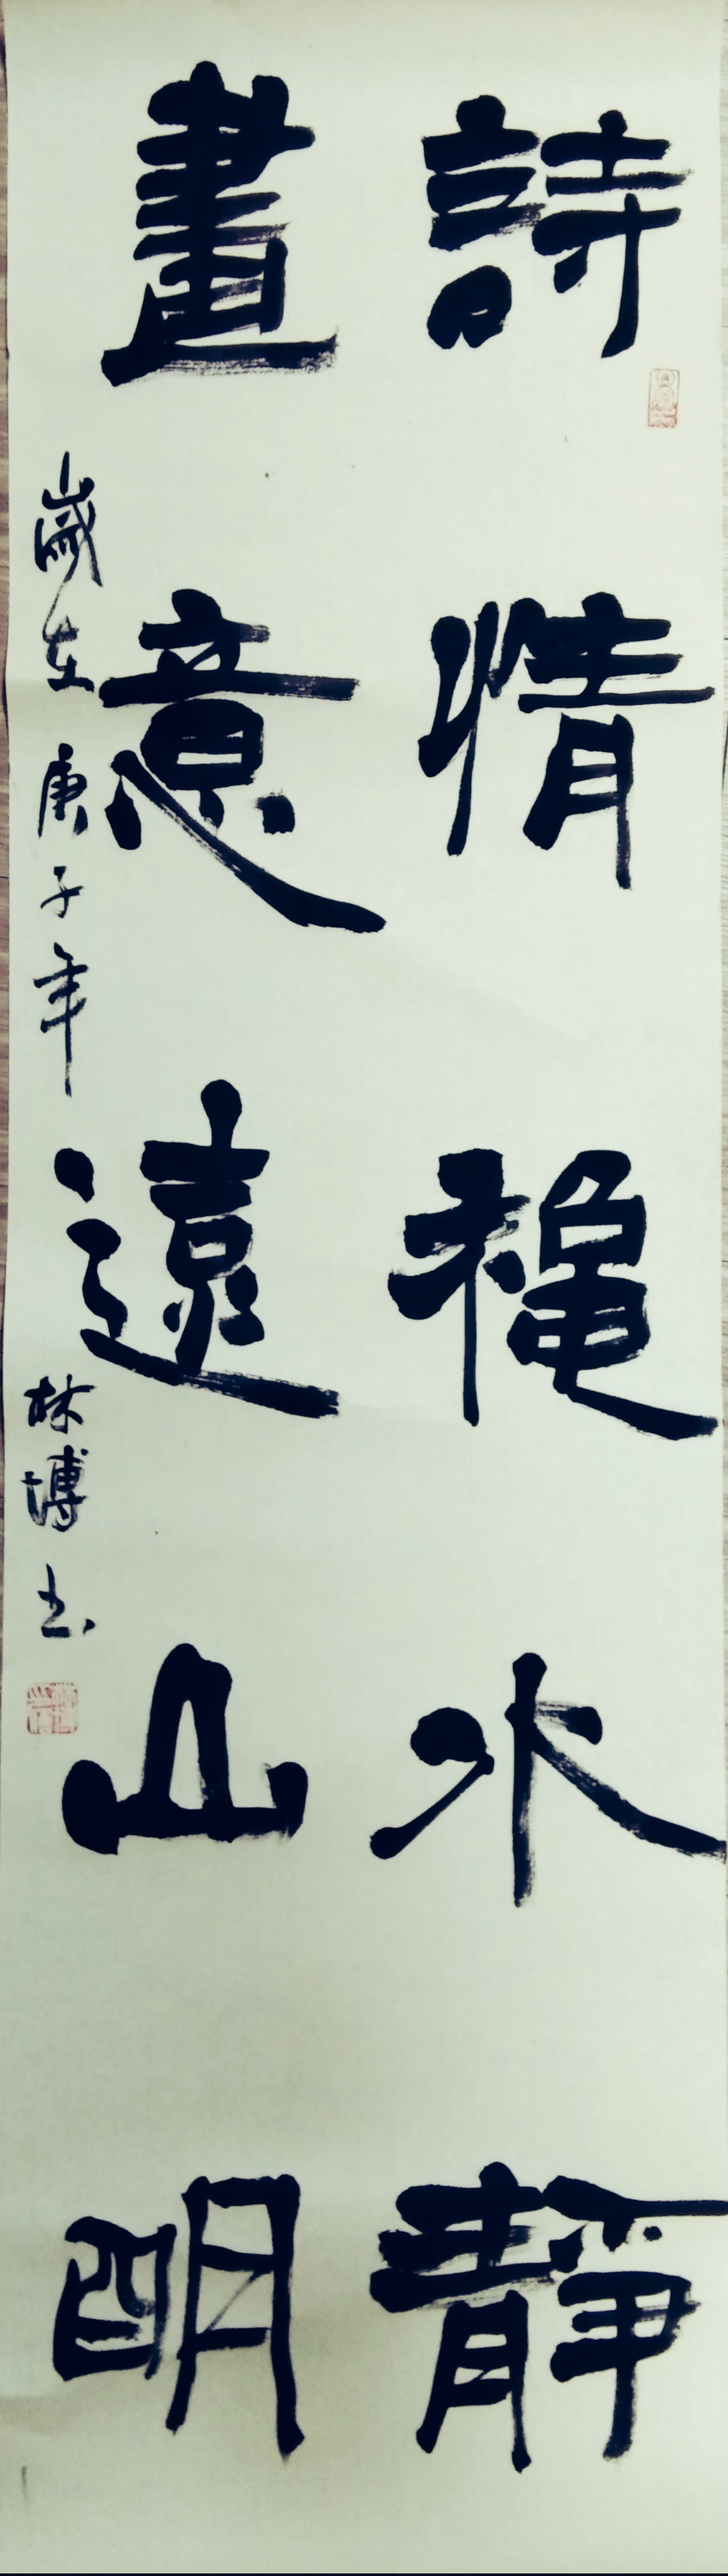 詩情穐水靜
畫意遠山明
歲在庚子年 林博书